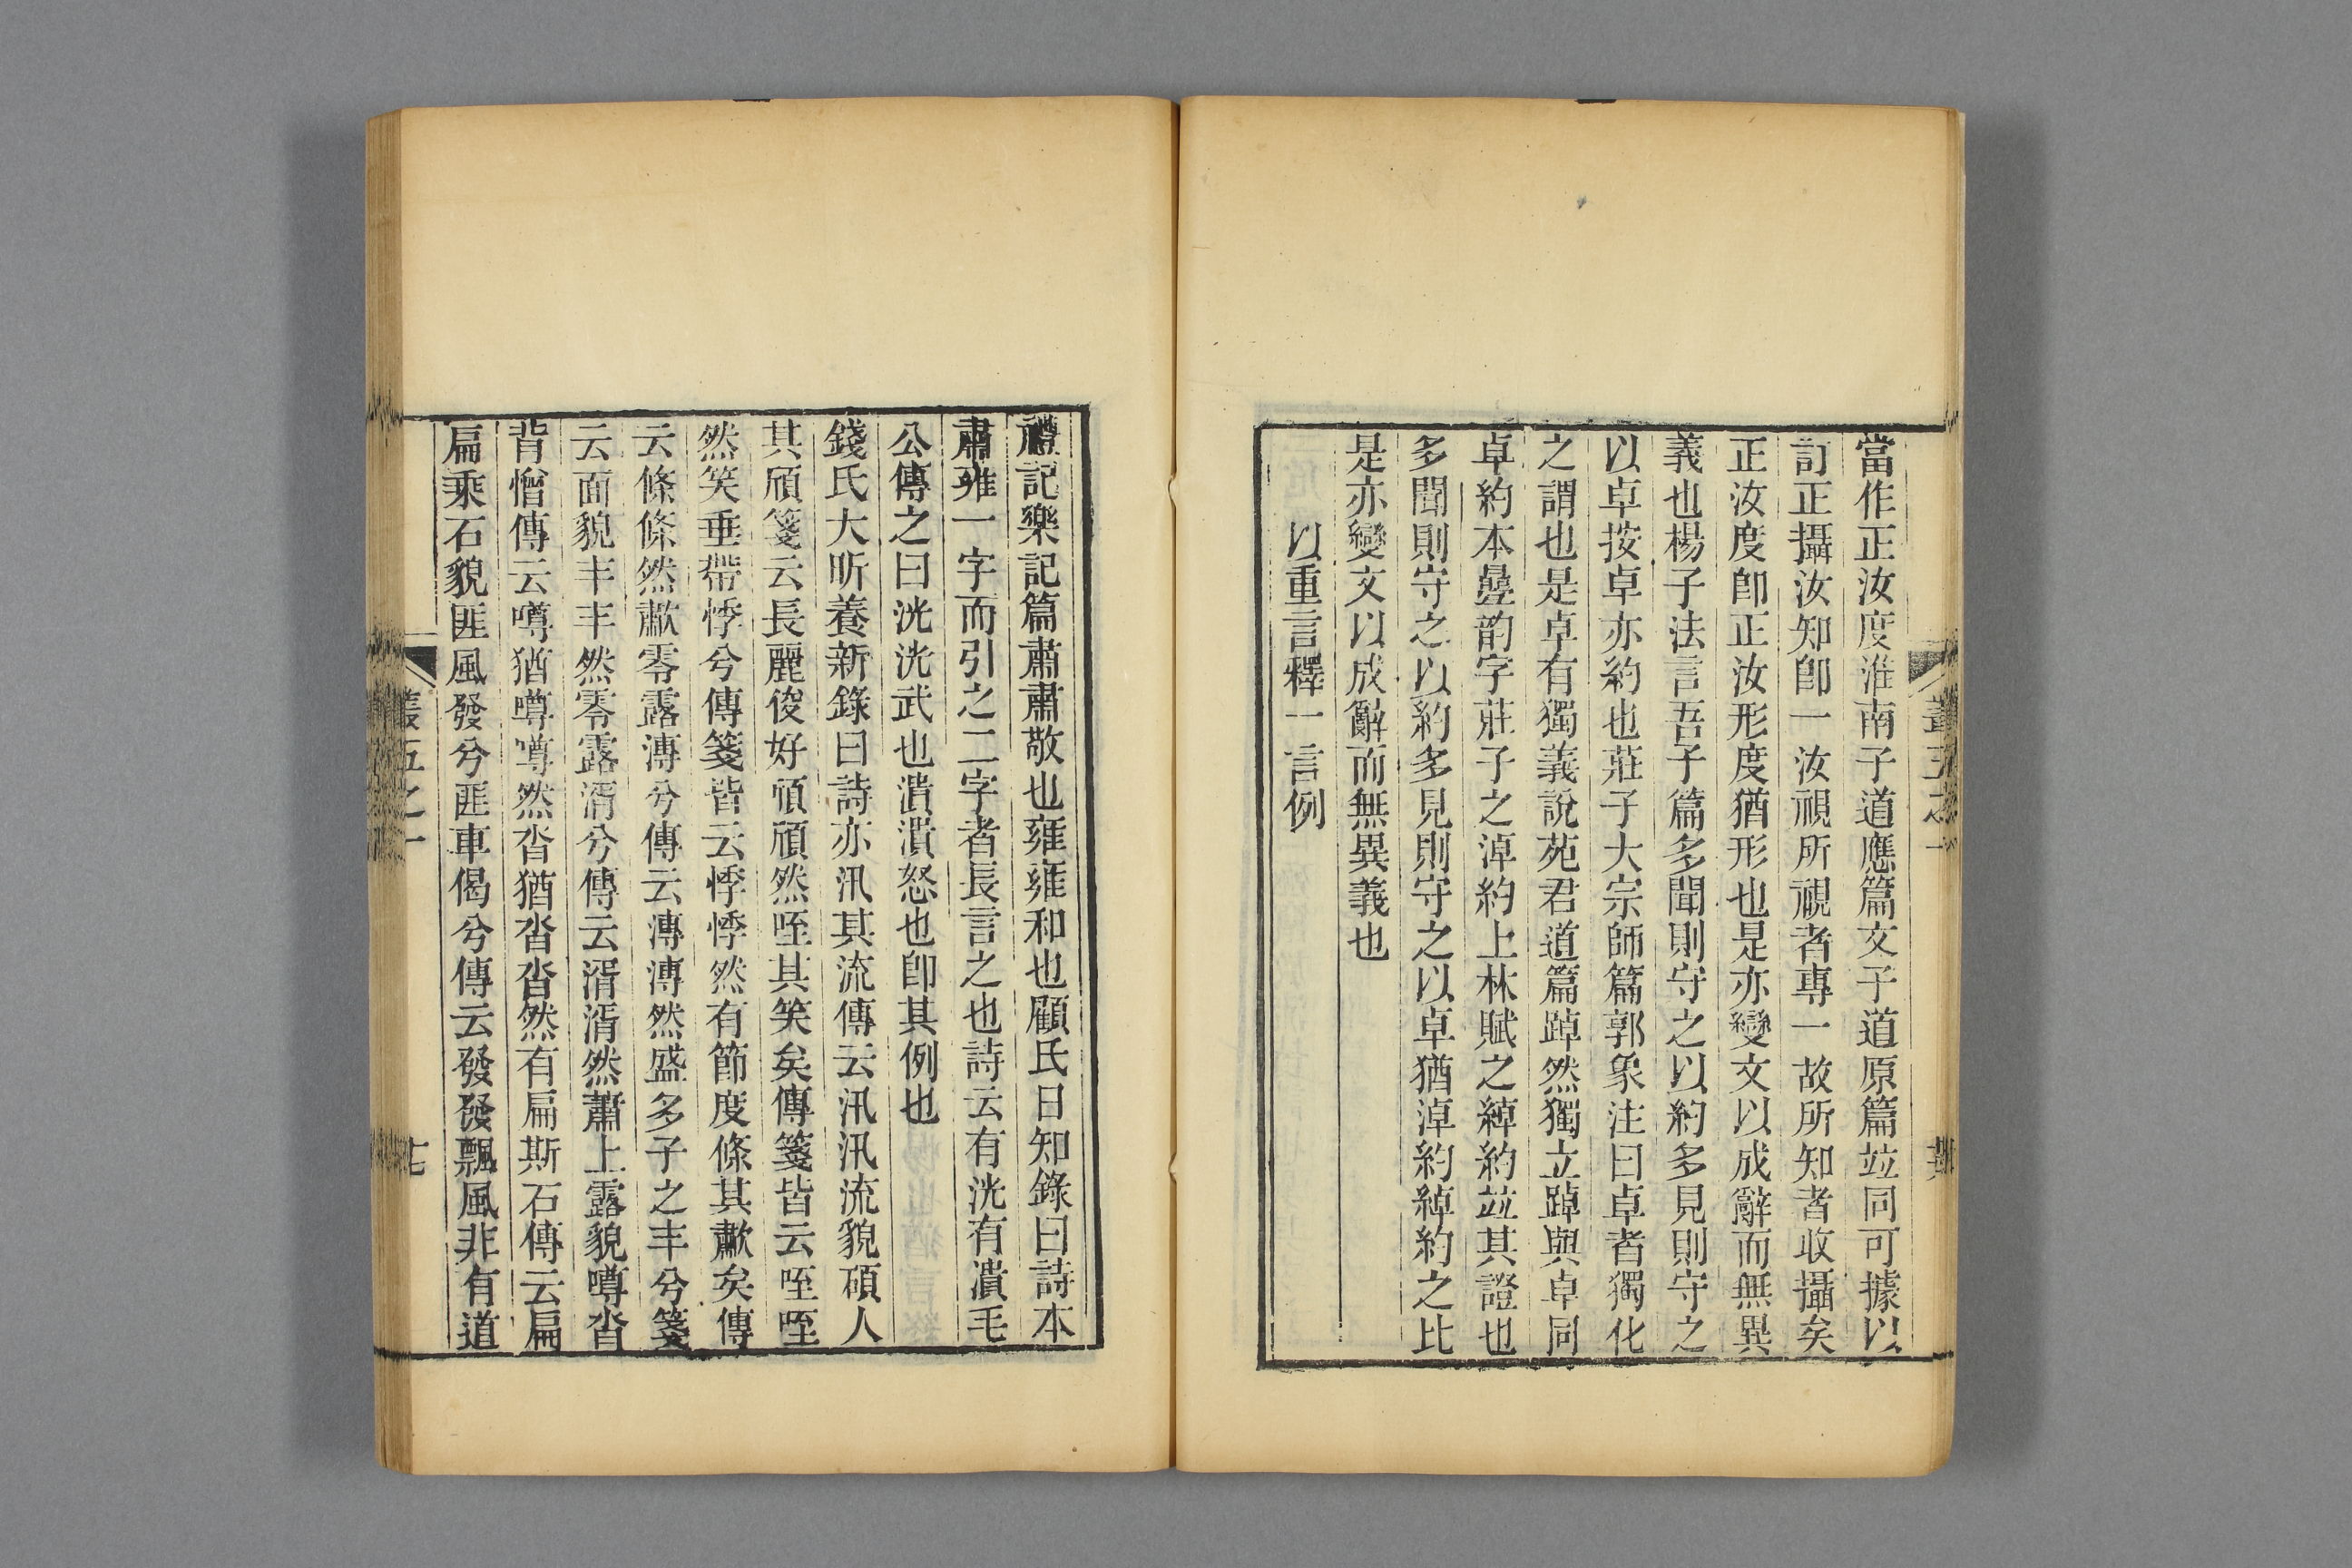 當作正汝度淮南子道應篇文子道原篇竝同可據以
訂正攝汝知卽一汝視所視者專一故所知者收攝矣
正汝度卽正汝形度猶形也是亦變文以成辭而無異
義也楊子法言吾子篇多聞則守之以約多見則守之
以卓按卓亦約也莊子大宗師篇郭象注曰卓者獨化
之謂也是卓有獨義說苑君道篇踔然獨立踔與卓同
卓約本疊韵字莊子之淖約上林賦之綽約竝其證也
多聞則守之以約多見則守之以卓猶淖約綽約之比
是亦變文以成辭而無異義也
以重言釋一言例
禮記樂記篇肅肅敬也雍雍和也顧氏日知錄曰詩本
肅雍一字而引之二字者長言之也詩云有洸有潰毛
公傳之曰洸洸武也潰潰怒也卽其例也
錢氏大昕養新錄曰詩亦汎其流傳云汎汎流貌碩人
其頎箋云長麗俊好頎頎然咥其笑矣傳箋皆云咥咥
然笑垂帶悸兮傳箋皆云悸悸然有節度條其歗矣傳
云條條然歗零露漙兮傳云漙漙然盛多子之丰兮箋
云面貌丰丰然零露湑兮傳云湑湑然蕭上露貌噂沓
背憎傳云噂猶噂噂然沓猶沓沓然有扁斯石傳云扁
扁乘石貌匪風發兮匪車偈兮傳云發發飄風非有道
叢五之一